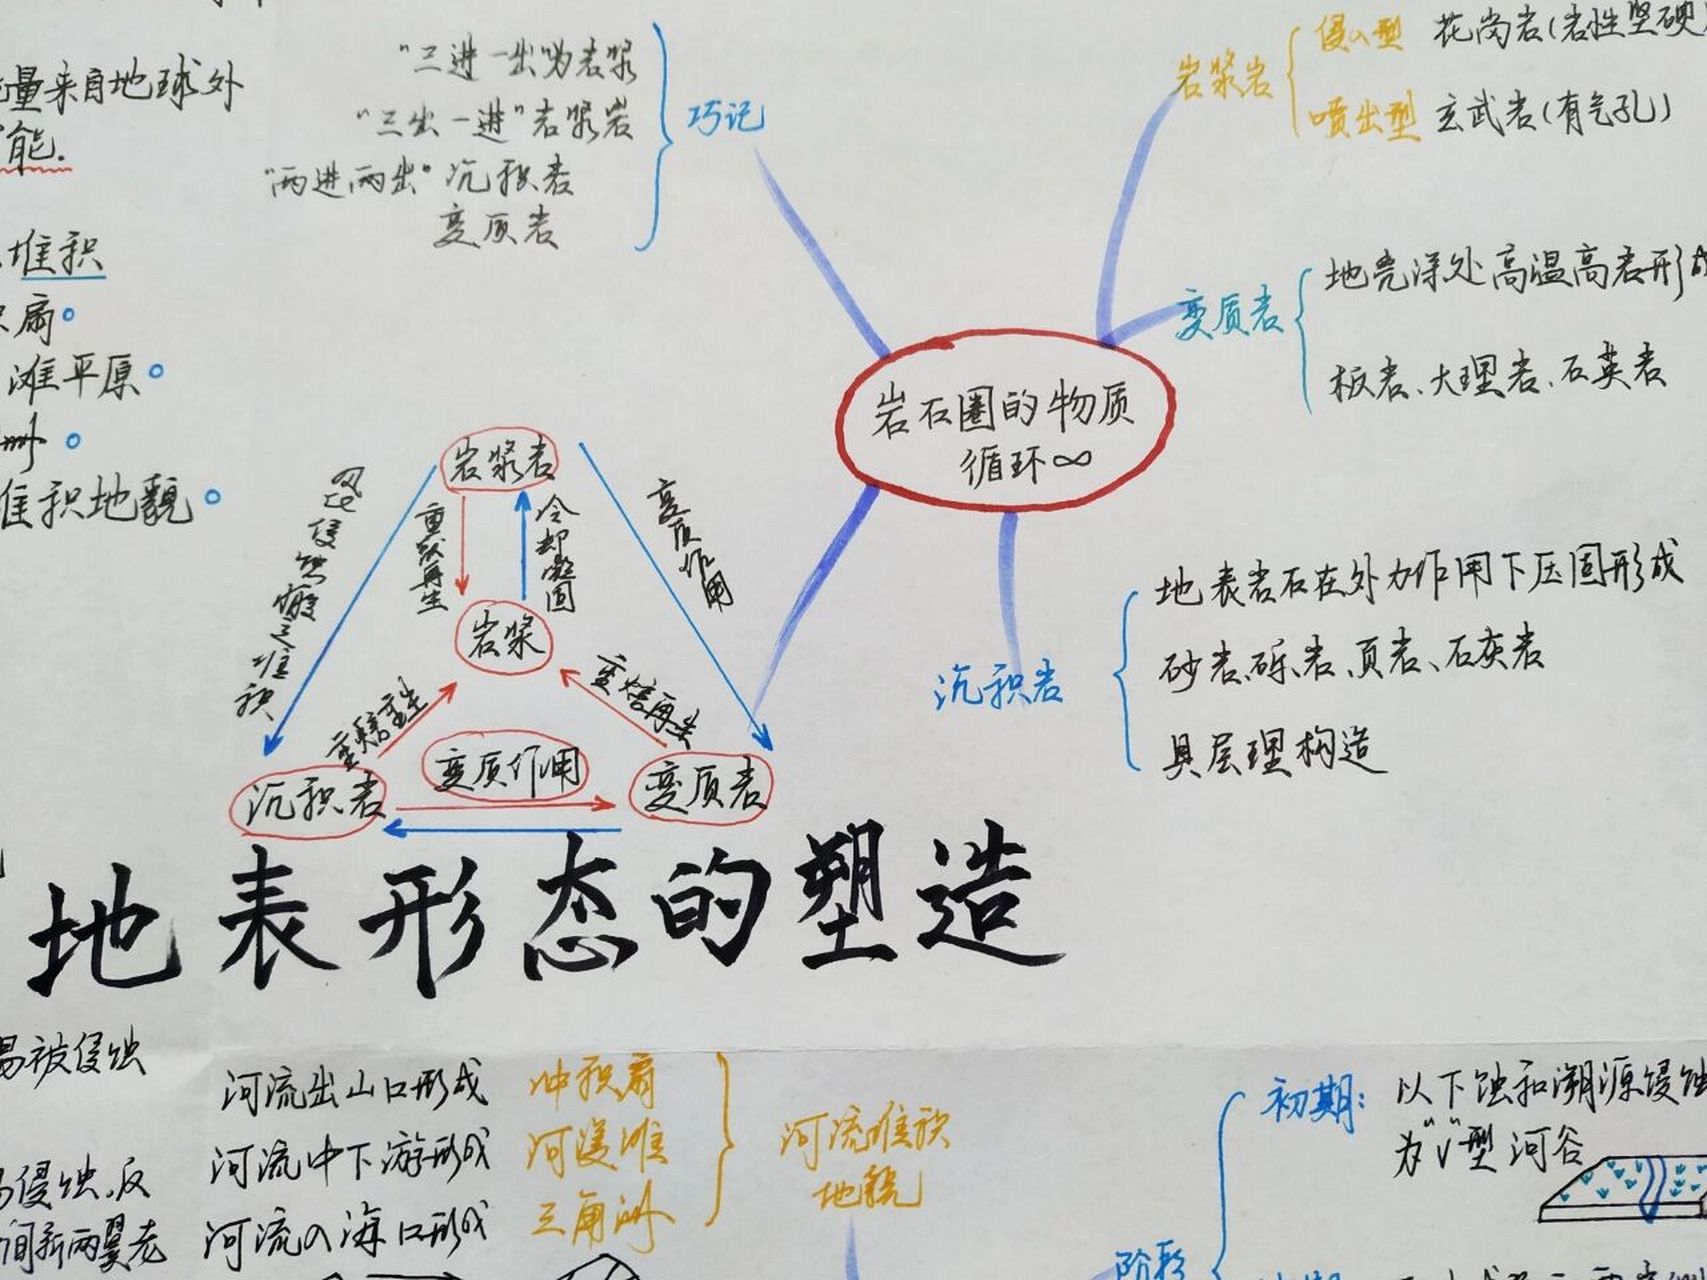 量来自地球外
能.
堆积
扇
滩平原
堆积地貌
"三进一出"岩浆
"三出一进"岩浆岩
"两进两出"沉积岩
变质岩
巧记
岩浆岩
侵入型 花岗岩(岩性坚硬
喷出型 玄武岩(有气孔)
变质岩
地壳深处高温高岩形成
板岩、大理岩、石英岩
岩石圈的物质
循环∞
沉积岩
地表岩石在外力作用下压固形成
砂岩、砾岩、页岩、石灰岩
具层理构造
岩浆岩
风化侵蚀搬运堆积
重熔再生
冷却凝固
变质作用
岩浆
重熔再生
沉积岩
变质作用
变质岩
地表形态的塑造
易被侵蚀
侵蚀,反
间新两翼老
河流出山口形成 冲积扇
河流中下游形成 河漫滩
河流入海口形成 三角洲
河流堆积
地貌
初期: 以下蚀和溯源侵蚀
为"V"型河谷
阶段